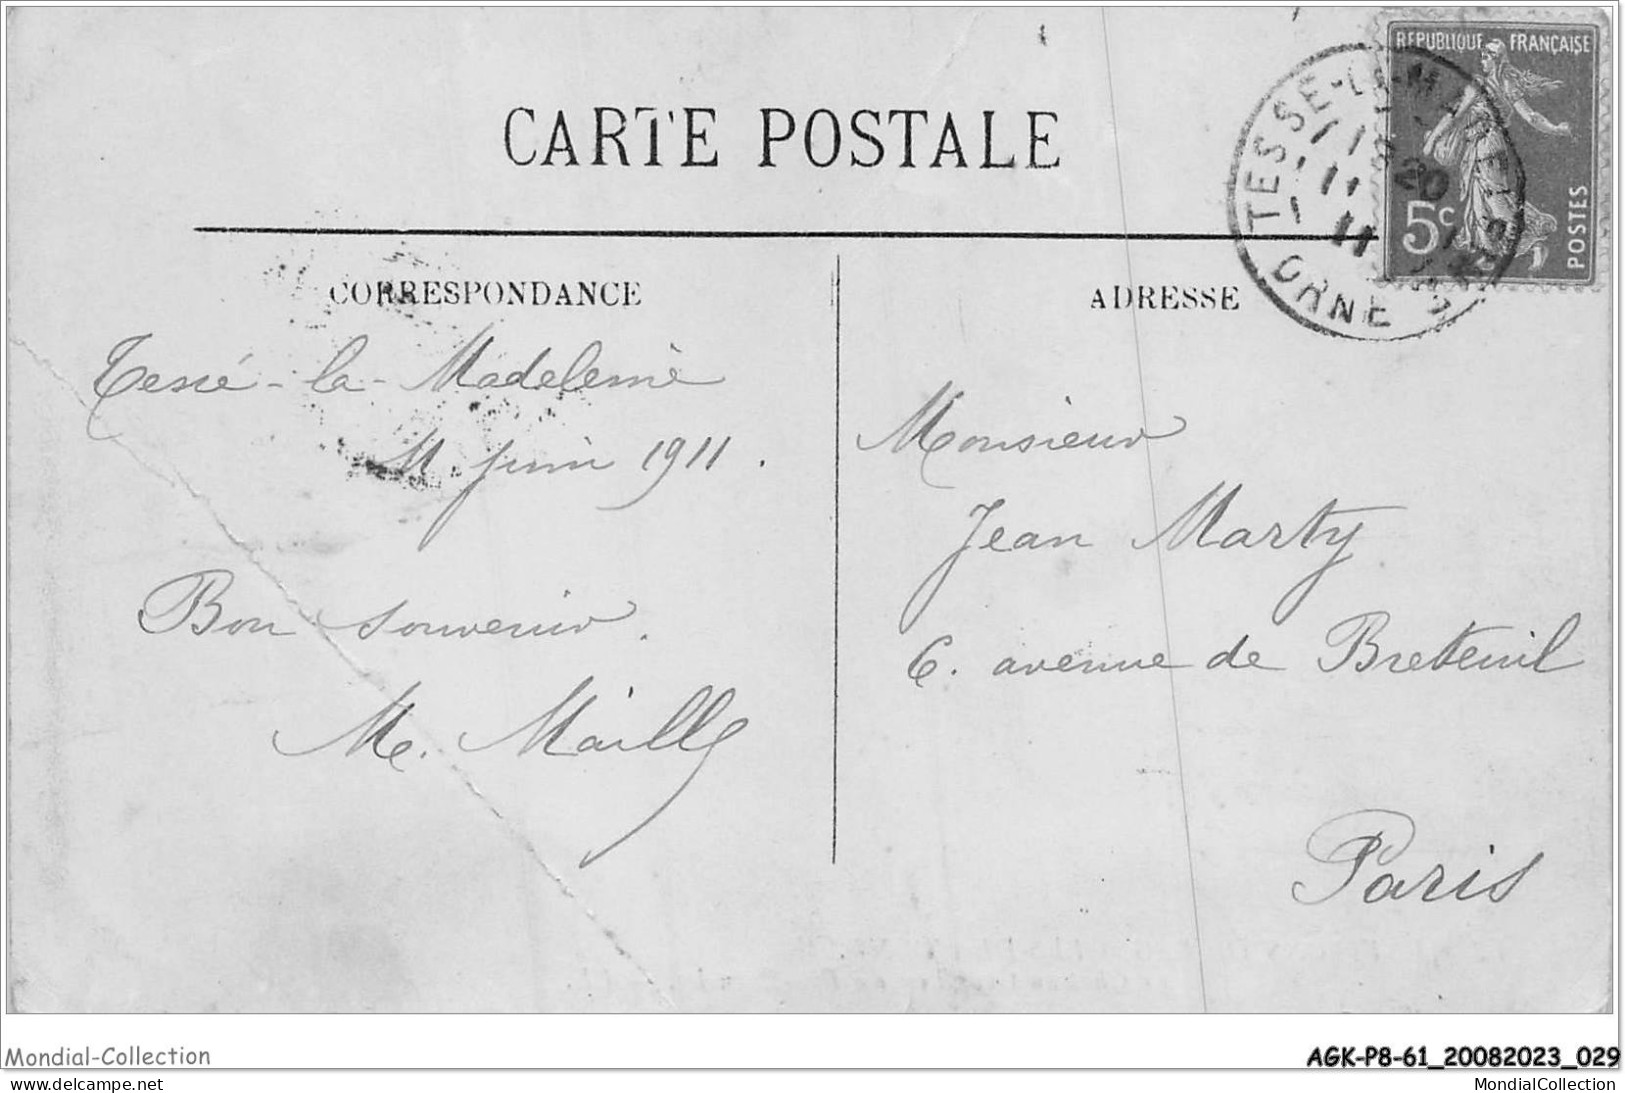 CARTE POSTALE
RÉPUBLIQUE FRANÇAISE
5c
POSTES
TESSE-LA-MADELEINE
20
11
ORNE
CORRESPONDANCE
ADRESSE
Tessé-la-Madeleine
11 juin 1911.
Bon souvenir.
M. Mailly
Monsieur
Jean Marty
6. avenue de Breteuil
Paris
Mondial-Collection
AGK-P8-61_20082023_029
delcampe.net
MondialCollection